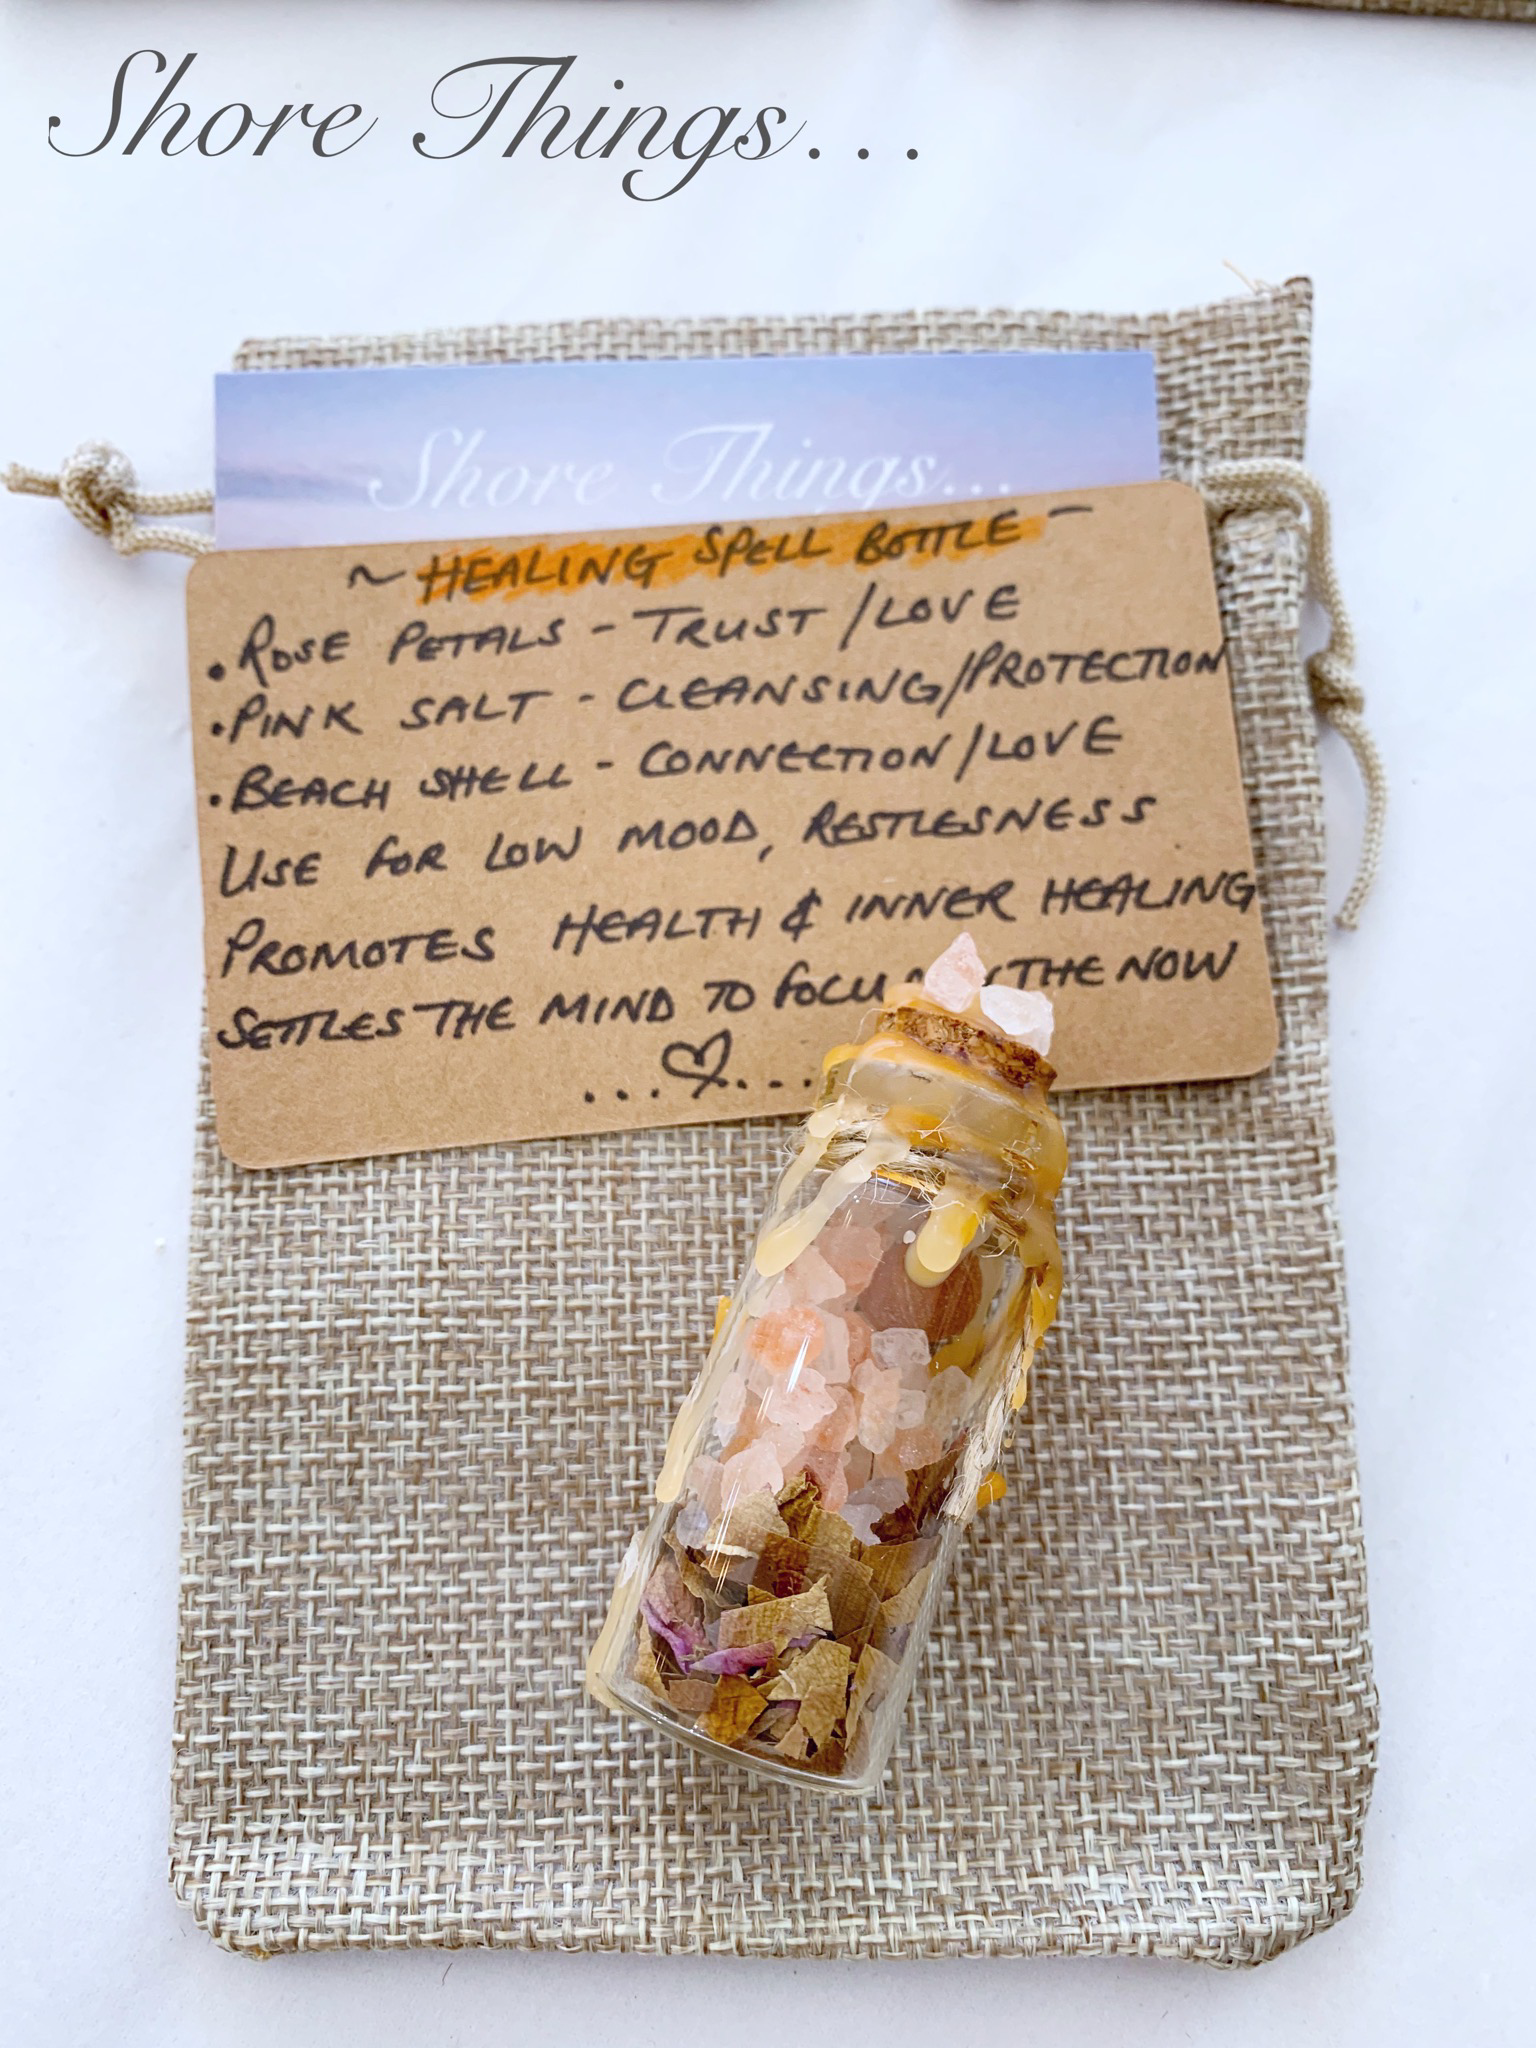 Shore Things...
Shore Things...
~ HEALING SPELL BOTTLE ~
• ROSE PETALS - TRUST / LOVE
• PINK SALT - CLEANSING/PROTECTION
• BEACH SHELL - CONNECTION / LOVE
USE FOR LOW MOOD, RESTLESNESS
PROMOTES HEALTH & INNER HEALING
SETTLES THE MIND TO THE NOW
...♡...